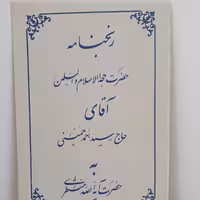 رنجنامه
حضرت حجة الاسلام والمسلمین
آقای
حاج سید احمد خمینی
به
حضرت آیة الله منتظری